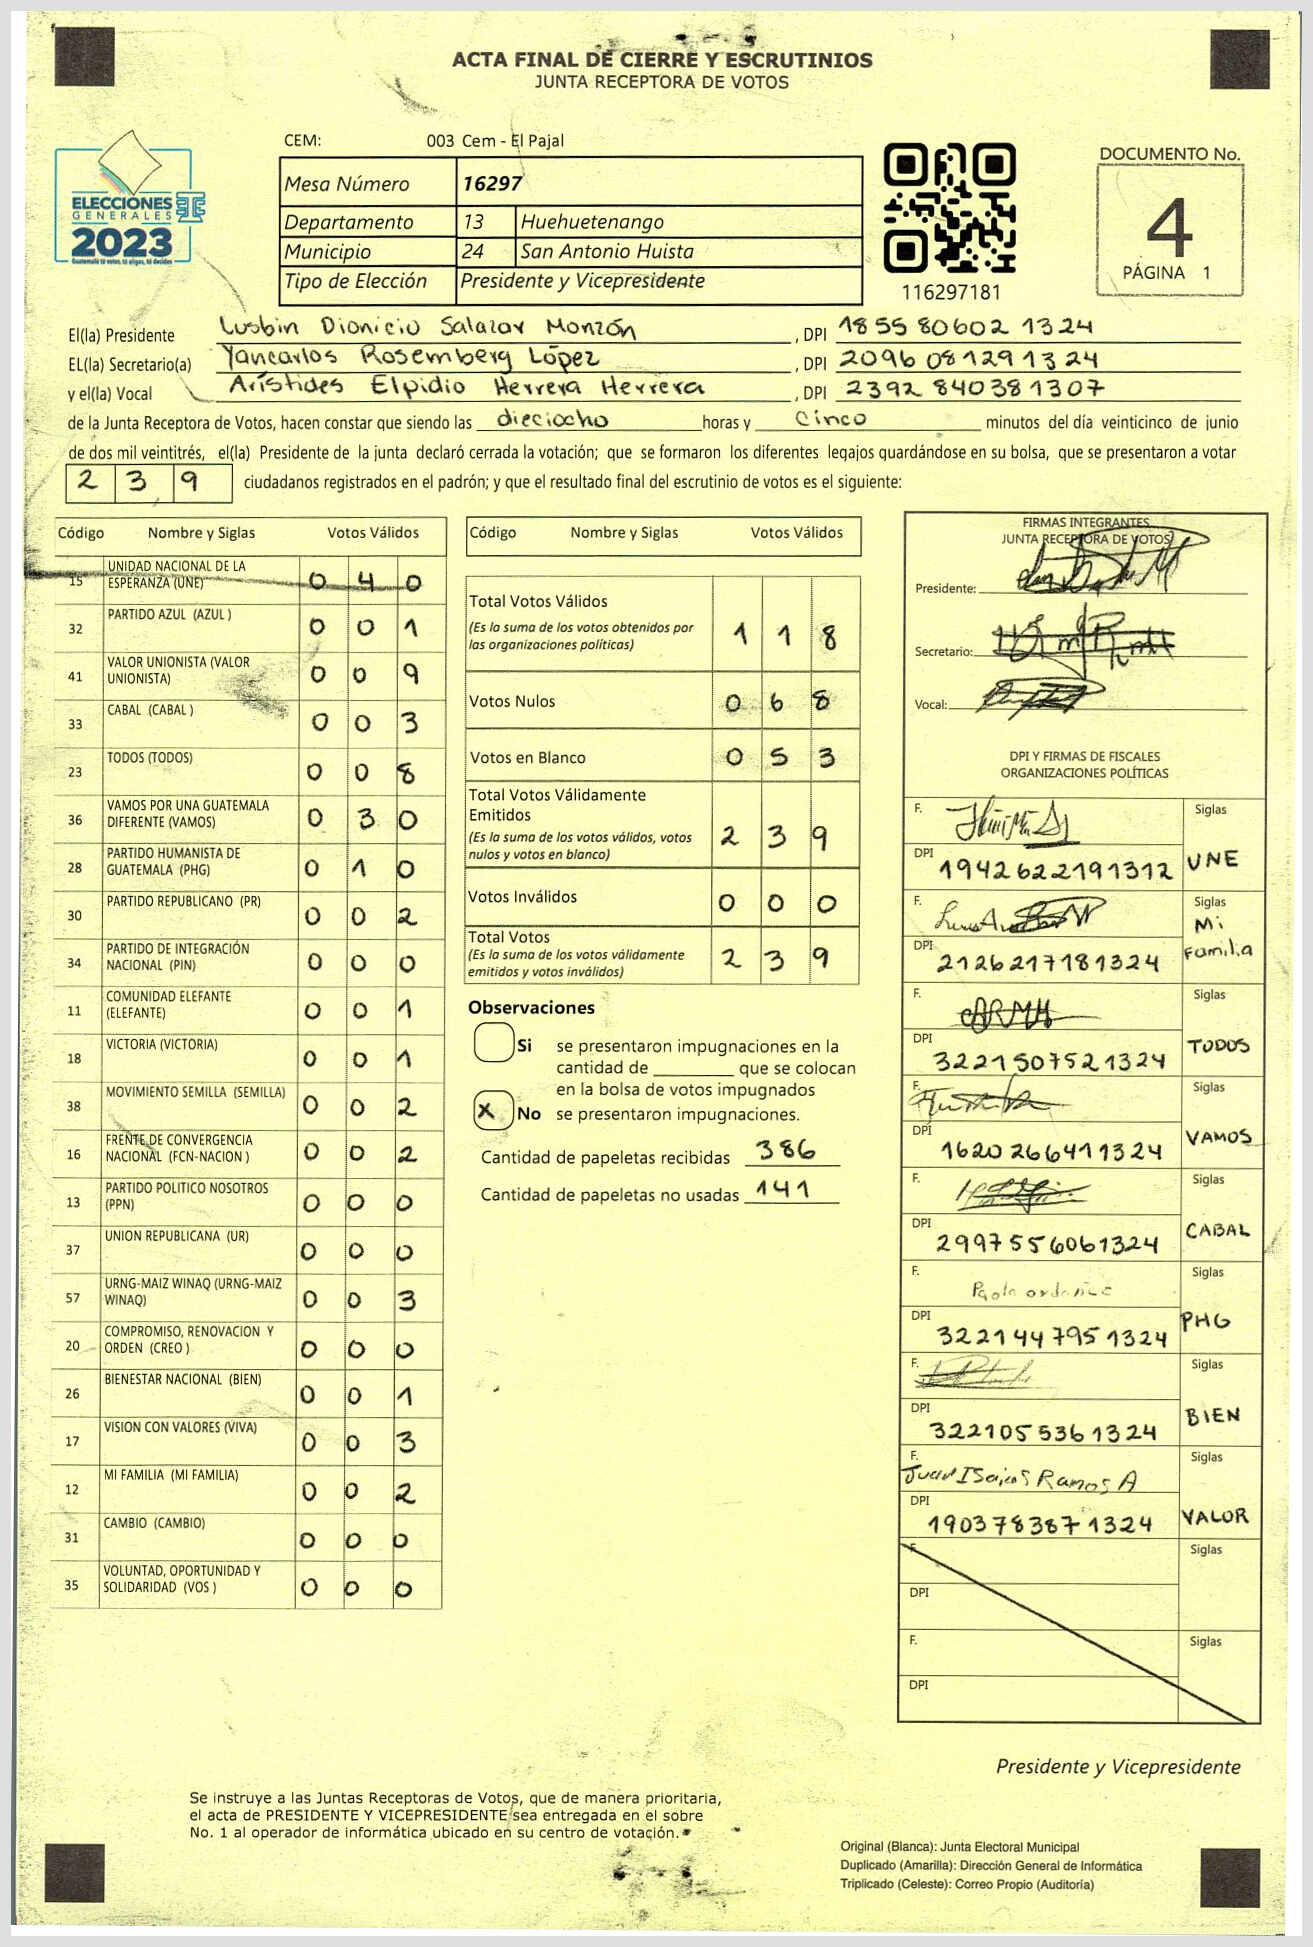 ACTA FINAL DE CIERRE Y ESCRUTINIOS
JUNTA RECEPTORA DE VOTOS
CEM: 003 Cem - El Pajal
DOCUMENTO No.
4
PÁGINA 1
ELECCIONES
GENERALES
2023
Guatemala tú votas, tú eliges, tú decides
Mesa Número 16297
Departamento 13 Huehuetenango
Municipio 24 San Antonio Huista
Tipo de Elección Presidente y Vicepresidente
116297181
El(la) Presidente Lusbin Dionicio Salazar Monzón , DPI 1855 80602 1324
EL(la) Secretario(a) Yancarlos Rosemberg López , DPI 2096 08129 1324
y el(la) Vocal Arístides Elpidio Herrera Herrera , DPI 2392 84038 1307
de la Junta Receptora de Votos, hacen constar que siendo las dieciocho horas y cinco minutos del día veinticinco de junio
de dos mil veintitrés, el(la) Presidente de la junta declaró cerrada la votación; que se formaron los diferentes legajos guardándose en su bolsa, que se presentaron a votar
2 3 9 ciudadanos registrados en el padrón; y que el resultado final del escrutinio de votos es el siguiente:
Código Nombre y Siglas Votos Válidos
15 UNIDAD NACIONAL DE LA ESPERANZA (UNE) 0 4 0
32 PARTIDO AZUL (AZUL ) 0 0 1
41 VALOR UNIONISTA (VALOR UNIONISTA) 0 0 9
33 CABAL (CABAL ) 0 0 3
23 TODOS (TODOS) 0 0 8
36 VAMOS POR UNA GUATEMALA DIFERENTE (VAMOS) 0 3 0
28 PARTIDO HUMANISTA DE GUATEMALA (PHG) 0 1 0
30 PARTIDO REPUBLICANO (PR) 0 0 2
34 PARTIDO DE INTEGRACIÓN NACIONAL (PIN) 0 0 0
11 COMUNIDAD ELEFANTE (ELEFANTE) 0 0 1
18 VICTORIA (VICTORIA) 0 0 1
38 MOVIMIENTO SEMILLA (SEMILLA) 0 0 2
16 FRENTE DE CONVERGENCIA NACIONAL (FCN-NACION ) 0 0 2
13 PARTIDO POLITICO NOSOTROS (PPN) 0 0 0
37 UNION REPUBLICANA (UR) 0 0 0
57 URNG-MAIZ WINAQ (URNG-MAIZ WINAQ) 0 0 3
20 COMPROMISO, RENOVACION Y ORDEN (CREO ) 0 0 0
26 BIENESTAR NACIONAL (BIEN) 0 0 1
17 VISION CON VALORES (VIVA) 0 0 3
12 MI FAMILIA (MI FAMILIA) 0 0 2
31 CAMBIO (CAMBIO) 0 0 0
35 VOLUNTAD, OPORTUNIDAD Y SOLIDARIDAD (VOS ) 0 0 0
Código Nombre y Siglas Votos Válidos
Total Votos Válidos
(Es la suma de los votos obtenidos por
las organizaciones políticas) 1 1 8
Votos Nulos 0 6 8
Votos en Blanco 0 5 3
Total Votos Válidamente
Emitidos
(Es la suma de los votos válidos, votos
nulos y votos en blanco) 2 3 9
Votos Inválidos 0 0 0
Total Votos
(Es la suma de los votos válidamente
emitidos y votos inválidos) 2 3 9
Observaciones
Si se presentaron impugnaciones en la
cantidad de ________ que se colocan
en la bolsa de votos impugnados
X No se presentaron impugnaciones.
Cantidad de papeletas recibidas 386
Cantidad de papeletas no usadas 141
FIRMAS INTEGRANTES
JUNTA RECEPTORA DE VOTOS
Presidente:
Secretario:
Vocal:
DPI Y FIRMAS DE FISCALES
ORGANIZACIONES POLÍTICAS
F. Siglas
DPI 1942622191312 UNE
F. Siglas
DPI 2126217181324 Mi Familia
F. Siglas
DPI 3221507521324 TODOS
F. Siglas
DPI 1620266411324 VAMOS
F. Siglas
DPI 2997556061324 CABAL
F. Siglas
DPI 3221447951324 PHG
F. Siglas
DPI 3221055361324 BIEN
F. Juan Isaias Ramos A Siglas
DPI 1903783871324 VALOR
F. Siglas
DPI
F. Siglas
DPI
Presidente y Vicepresidente
Se instruye a las Juntas Receptoras de Votos, que de manera prioritaria,
el acta de PRESIDENTE Y VICEPRESIDENTE sea entregada en el sobre
No. 1 al operador de informática ubicado en su centro de votación.
Original (Blanca): Junta Electoral Municipal
Duplicado (Amarilla): Dirección General de Informática
Triplicado (Celeste): Correo Propio (Auditoría)